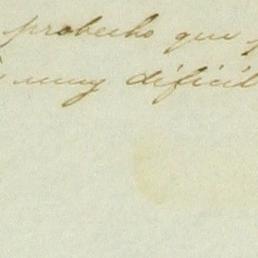 probecho que
muy dificil